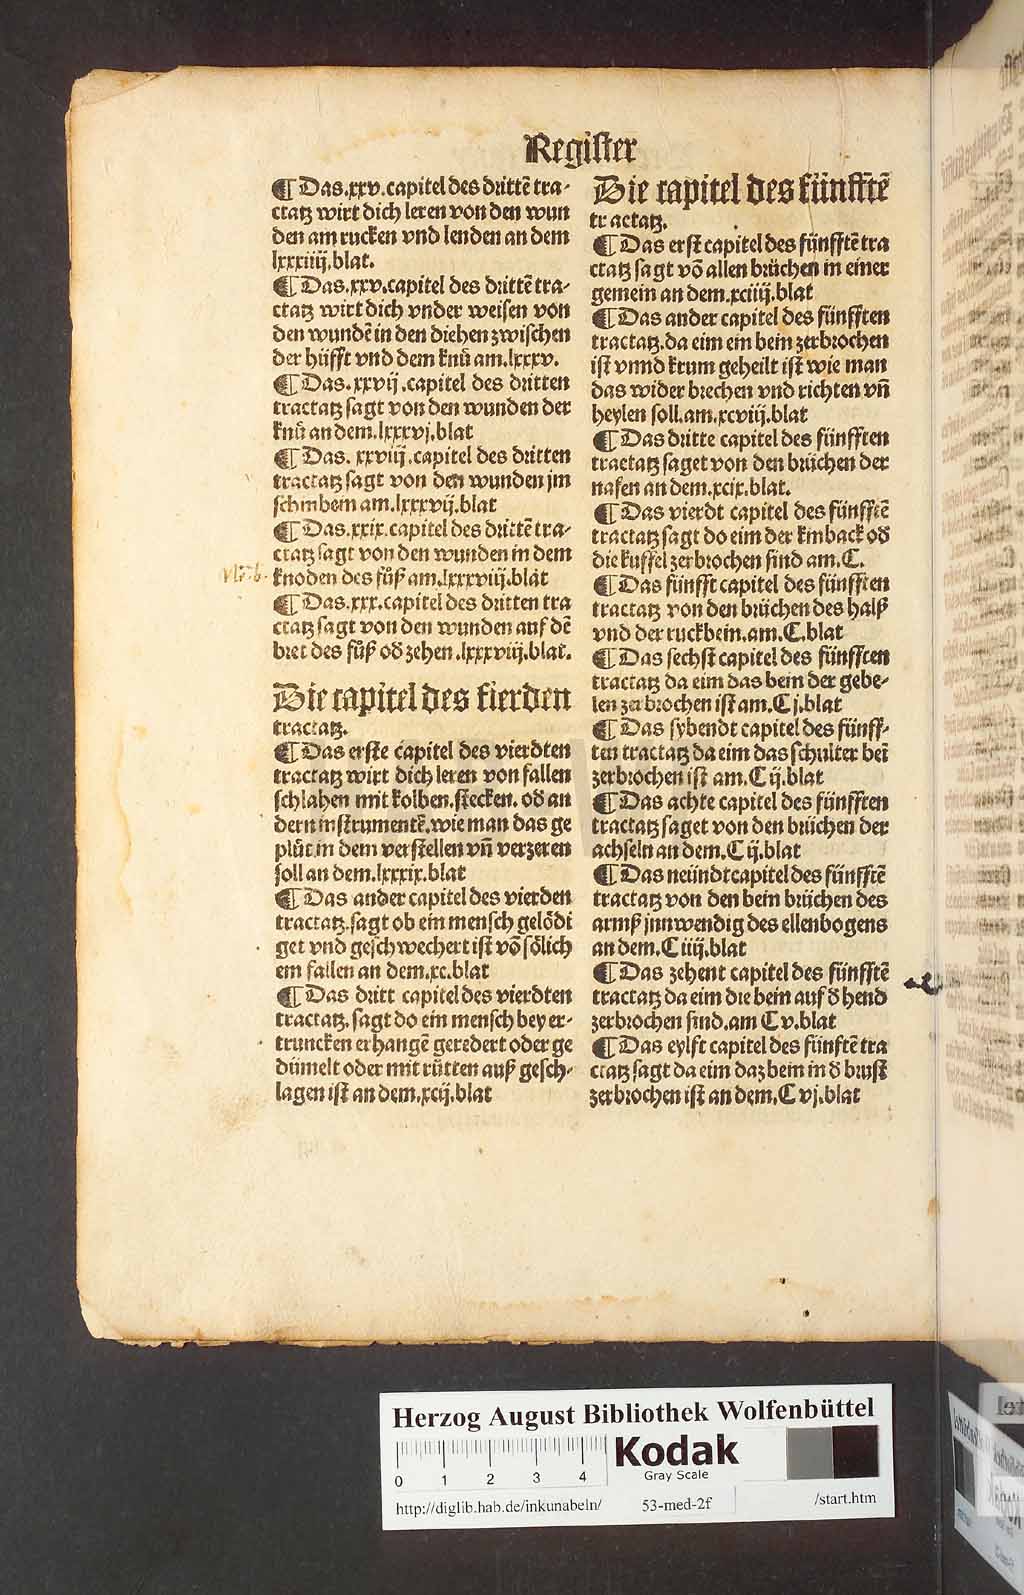 Register
¶ Das.xxv.capitel des drittē tra-
ctatz wirt dich leren von den wun
den am rucken vnd lenden an dem
lxxxiiij.blat.
¶ Das.xxv.capitel des drittē tra-
ctatz wirt dich vnder weisen von
den wundē in den diehen zwischen
der hüfft vnd dem knü am.lxxxv.
¶ Das.xxvij.capitel des dritten
tractatz sagt von den wunden der
knü an dem.lxxxvj.blat
¶ Das.xxviij.capitel des dritten
tractatz sagt von den wunden jm
schinbein am.lxxxvij.blat
¶ Das.xxix.capitel des drittē tra-
ctatz sagt von den wunden in dem
knoden des fůß am.lxxxviij.blat
¶ Das.xxx.capitel des dritten tra
ctatz sagt von den wunden auf dē
bret des fůß od zehen.lxxxviij.blat.
Die capitel des fierden
tractatz.
¶ Das erste capitel des vierdten
tractatz wirt dich leren von fallen
schlahen mit kolben.stecken.od an
dern instrumentē.wie man das ge
plüt in dem verstellen vn̄ verzeren
soll an dem.lxxxix.blat
¶ Das ander capitel des vierden
tractatz.sagt ob ein mensch gelödi
get vnd geschwechert ist vō sölich
em fallen an dem.xc.blat
¶ Das dritt capitel des vierdten
tractatz.sagt do ein mensch bey er-
truncken erhangē geredert oder ge
dümelt oder mit rütten auß gesch-
lagen ist an dem.xcij.blat
Die capitel des fünfftē
tractatz.
¶ Das erst capitel des fünfftē tra
ctatz sagt vō allen brüchen in einer
gemein an dem.xciiij.blat
¶ Das ander capitel des fünfften
tractatz.da eim ein bein zerbrochen
ist vnnd krum geheilt ist wie man
das wider brechen vnd richten vn̄
heylen soll.am.xcviij.blat
¶ Das dritte capitel des fünfften
tractatz saget von den brüchen der
nasen an dem.xcix.blat.
¶ Das vierdt capitel des fünfftē
tractatz sagt do eim der kinback od
die kuffel zerbrochen sind am.C.
¶ Das fünfft capitel des fünfften
tractatz von den brüchen des halß
vnd der ruckbein.am.C.blat
¶ Das sechst capitel des fünfften
tractatz da eim das bein der gebe-
len zerbrochen ist am.Cj.blat
¶ Das sybendt capitel des fünff-
ten tractatz da eim das schulter bei̅
zerbrochen ist am.Cij.blat
¶ Das achte capitel des fünfften
tractatz saget von den brüchen der
achseln an dem.Cij.blat
¶ Das neündt capitel des fünfftē
tractatz von den bein brüchen des
armß jnnwendig des ellenbogens
an dem.Ciiij.blat
¶ Das zehent capitel des fünfftē
tractatz da eim die bein auf d hend
zerbrochen sind.am Cv.blat
¶ Das eylft capitel des fünftē tra
ctatz sagt da eim daz bein in d brust
zerbrochen ist an dem.Cvj.blat
Herzog August Bibliothek Wolfenbüttel
0 1 2 3 4
Kodak
Gray Scale
http://diglib.hab.de/inkunabeln/ 53-med-2f /start.htm